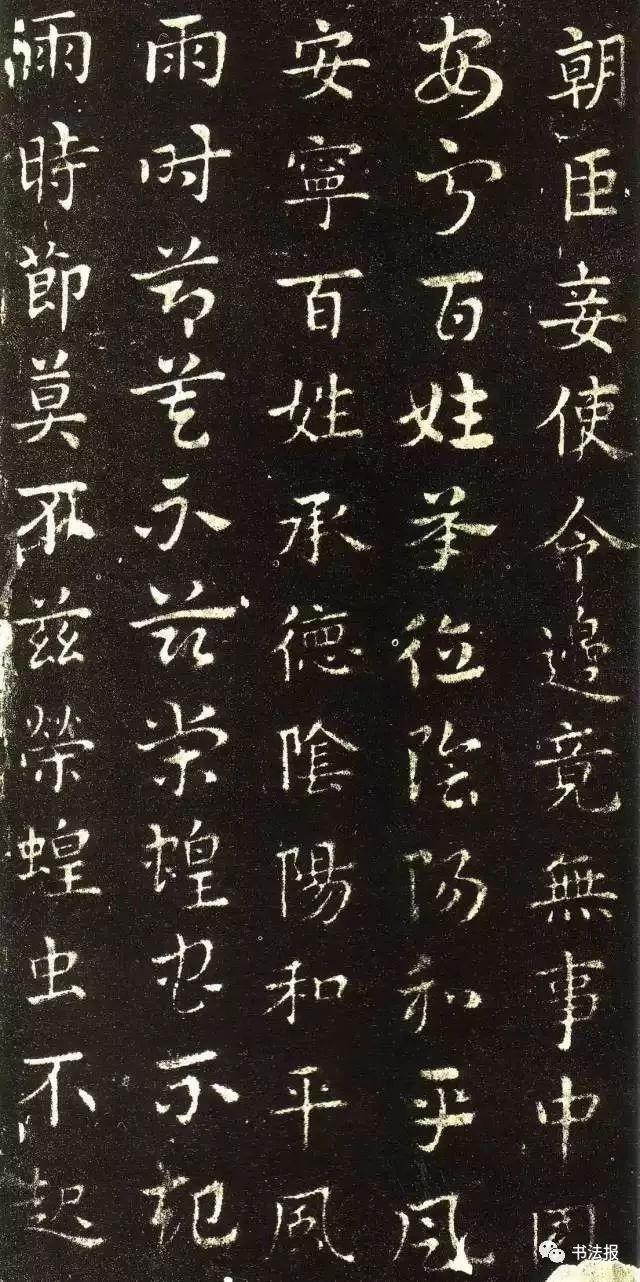 朝臣妾使令邊竟無事中國
安寧百姓承德陰陽和平風
安寧百姓承德陰陽和平風
雨时節莫不茲榮蝗虫不起
雨時節莫不茲榮蝗虫不起
书法报